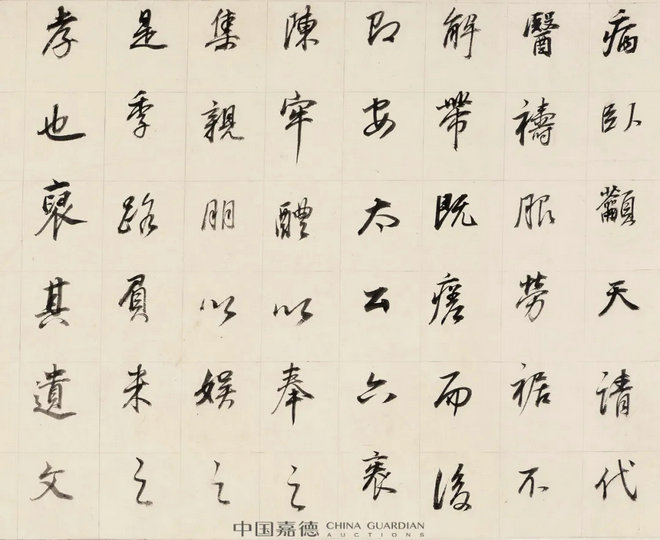 病卧籲天請代
醫禱服勞裾不
解帶既瘥而後
即安太公六袠
陳牢醴以奉之
集親朋以娛之
是季路負米之
孝也裒其遺文
中国嘉德 CHINA GUARDIAN
AUCTIONS